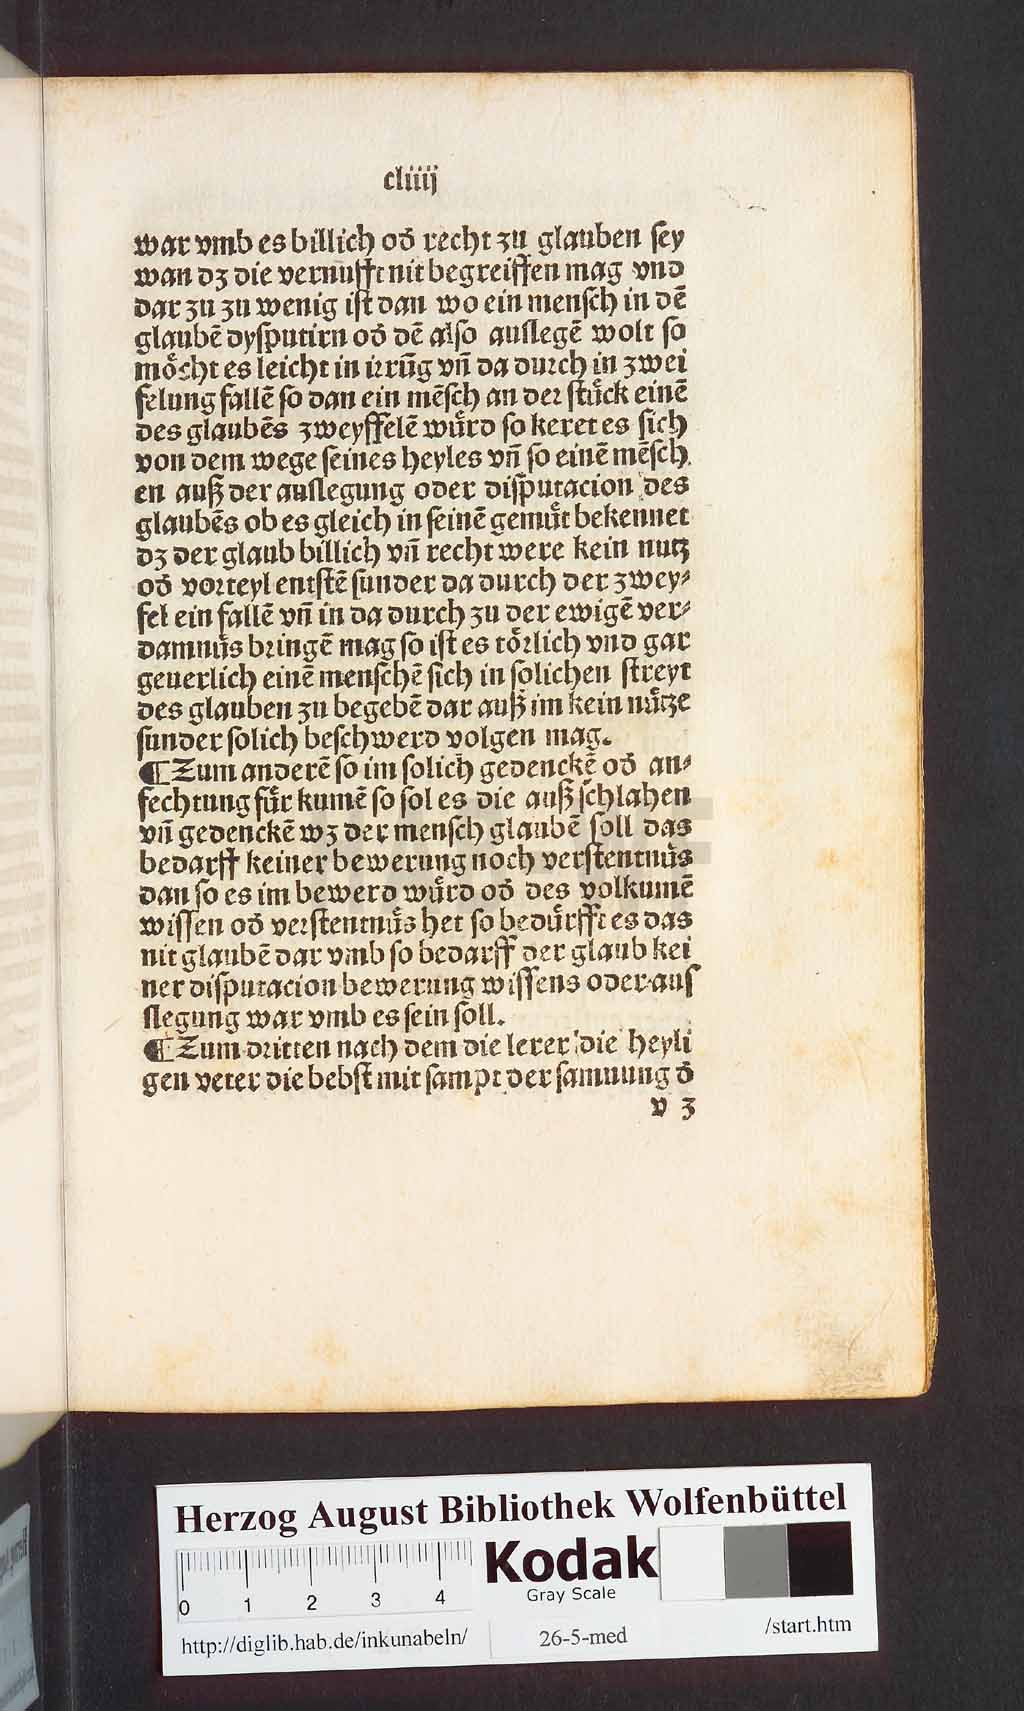 cliiij
war vmb es billich od̕ recht zu glauben ſey
wan dz die vernufft nit begreiffen mag vnd
dar zu zu wenig iſt dan wo ein menſch in dē
glaubē dyſputirn od̕ dē alſo auſlegē wolt ſo
moͤcht es leicht in irrūg vn̄ da durch in zwei
felung fallē ſo dan ein mēſch an der ſtuͤck einē
des glaubēs zweyffelē wuͤrd ſo keret es ſich
von dem wege ſeines heyles vn̄ ſo einē mēſch
en auß der auſlegung oder diſputacion des
glaubēs ob es gleich in ſeinē gemuͤt bekennet
dz der glaub billich vn̄ recht were kein nutz
od̕ vorteyl entſtē ſunder da durch der zwey⸗
fel ein fallē vn̄ in da durch zu der ewigē ver⸗
damnuͤs bringē mag ſo iſt es toͤrlich vnd gar
geuerlich einē menſchē ſich in ſolichen ſtreyt
des glauben zu begebē dar auß im kein nuͤtze
ſunder ſolich beſchwerd volgen mag.
¶ Zum anderē ſo im ſolich gedenckē od̕ an⸗
fechtung fuͤr kumē ſo ſol es die auß ſchlahen
vn̄ gedenckē wz der menſch glaubē ſoll das
bedarff keiner bewerung noch verſtentnuͤs
dan ſo es im bewerd wuͤrd od̕ des volkumē
wiſſen od̕ verſtentnuͤs het ſo beduͤrfft es das
nit glaubē dar vmb ſo bedarff der glaub kei
ner diſputacion bewerung wiſſens oder auſ
ſlegung war vmb es ſein ſoll.
¶ Zum dritten nach dem die lerer die heyli
gen veter die bebſt mit ſampt der ſamnung d̕
v 3
Herzog August Bibliothek Wolfenbüttel
Kodak
Gray Scale
0 1 2 3 4
http://diglib.hab.de/inkunabeln/ 26-5-med /start.htm